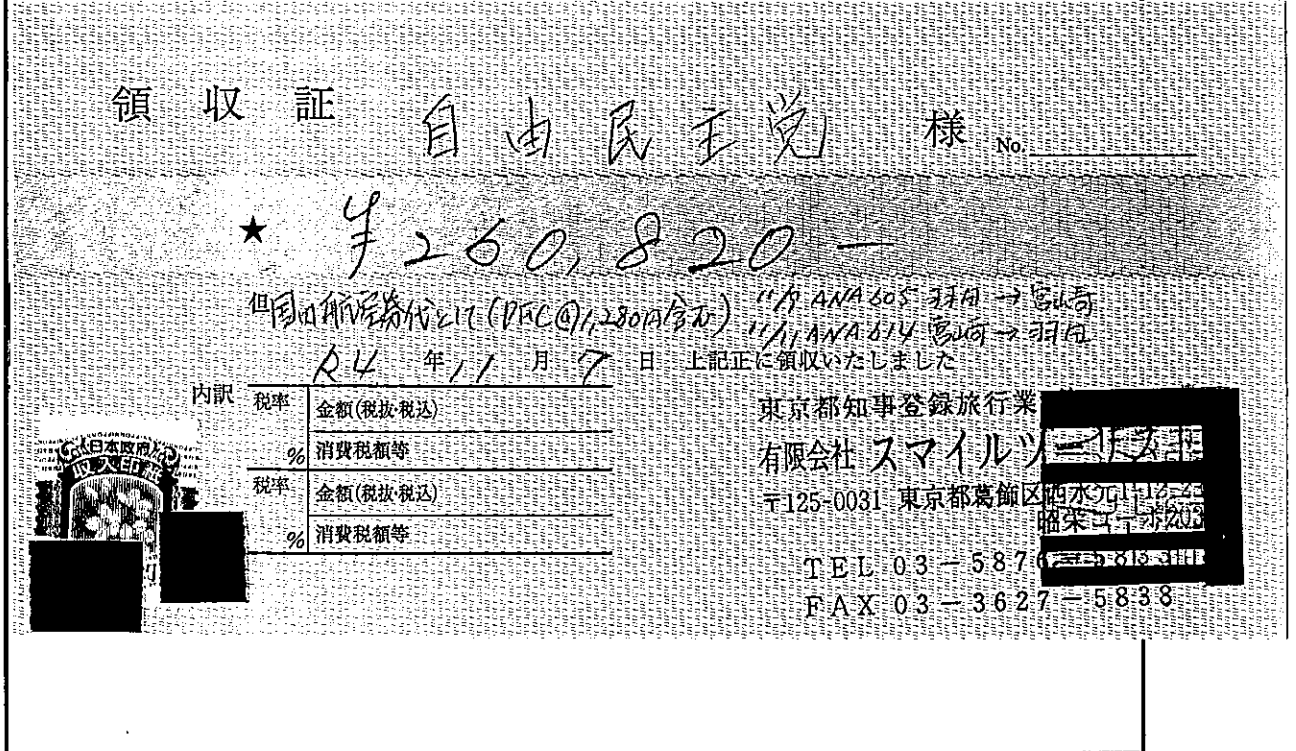 領 収 証 自由民主党 様 No.
★ ¥260,820—
但国内航空券代として(PFC@1,280円含む) 11/9 ANA605 羽田→宮崎
11/11 ANA614 宮崎→羽田
R4 年 11 月 7 日 上記正に領収いたしました
内訳
税率 金額(税抜・税込)
% 消費税額等
税率 金額(税抜・税込)
% 消費税額等
日本政府
収入印紙
東京都知事登録旅行業
有限会社 スマイルツーリスト
〒125-0031 東京都葛飾区西水元1-13-23
昭栄コーポ203
TEL 03-5876-5
FAX 03-3627-5838